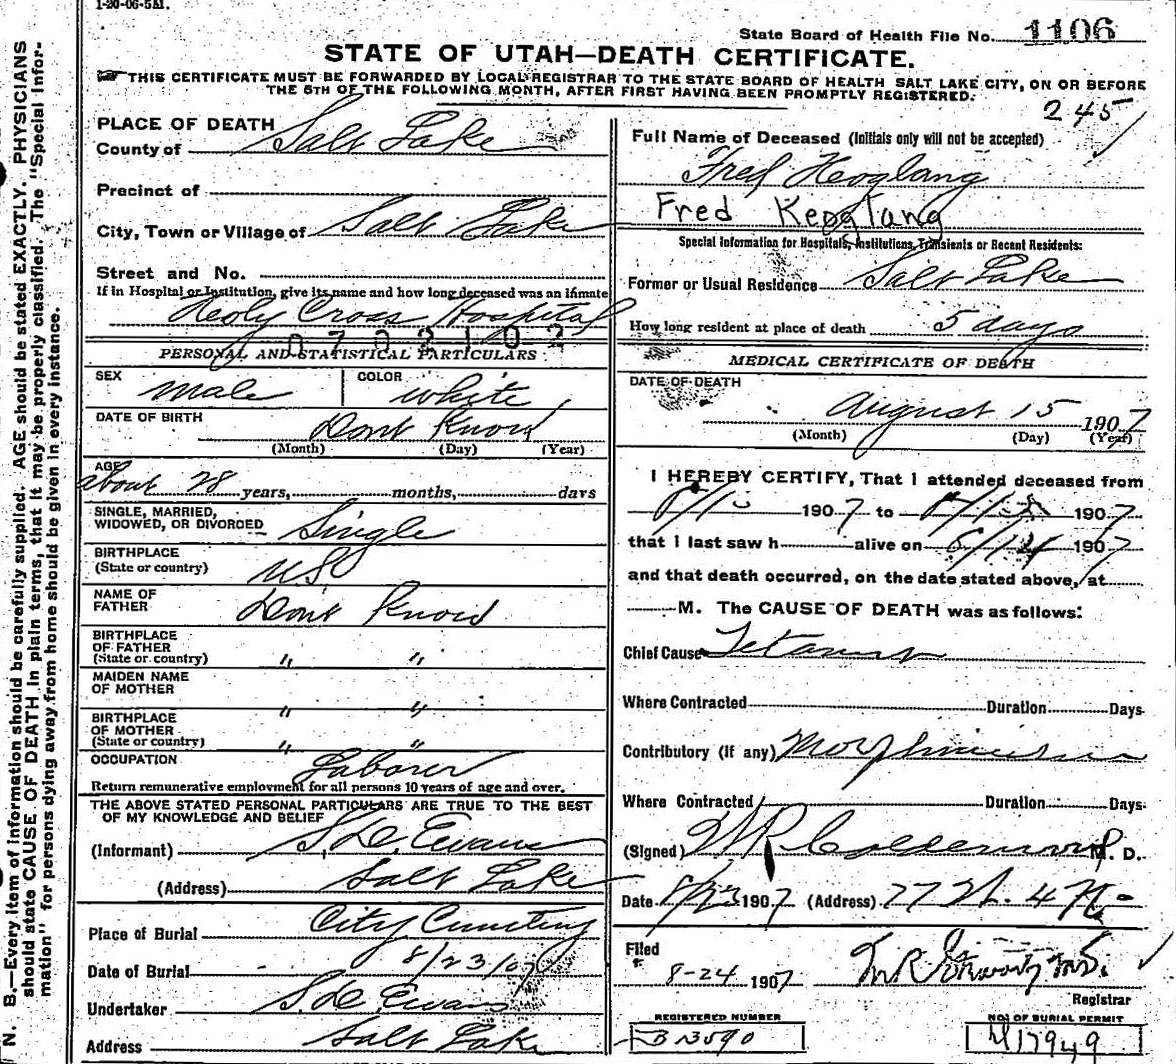 1-20-06-5M.
State Board of Health File No. 1106
STATE OF UTAH—DEATH CERTIFICATE.
THIS CERTIFICATE MUST BE FORWARDED BY LOCAL REGISTRAR TO THE STATE BOARD OF HEALTH SALT LAKE CITY, ON OR BEFORE
THE 5TH OF THE FOLLOWING MONTH, AFTER FIRST HAVING BEEN PROMPTLY REGISTERED.
245
N. B.—Every item of information should be carefully supplied. AGE should be stated EXACTLY. PHYSICIANS
should state CAUSE OF DEATH in plain terms, that it may be properly classified. The "Special Infor-
mation" for persons dying away from home should be given in every instance.
PLACE OF DEATH
County of Salt Lake
Precinct of
City, Town or Village of Salt Lake
Street and No.
If in Hospital or Institution, give its name and how long deceased was an inmate
Holy Cross Hospital
0702102
PERSONAL AND STATISTICAL PARTICULARS
SEX male COLOR white
DATE OF BIRTH Dont Know
(Month) (Day) (Year)
AGE
about 28 years, months, days
SINGLE, MARRIED,
WIDOWED, OR DIVORCED Single
BIRTHPLACE
(State or country) US
NAME OF
FATHER Dont Know
BIRTHPLACE
OF FATHER
(State or country) " "
MAIDEN NAME
OF MOTHER " "
BIRTHPLACE
OF MOTHER
(State or country) " "
OCCUPATION Laborer
Return remunerative employment for all persons 10 years of age and over.
THE ABOVE STATED PERSONAL PARTICULARS ARE TRUE TO THE BEST
OF MY KNOWLEDGE AND BELIEF
(Informant) S. D. Evans
(Address) Salt Lake
Place of Burial City Cemetery
Date of Burial 8/23/07
Undertaker S. D. Evans
Address Salt Lake
Full Name of Deceased (Initials only will not be accepted)
Fred Keoglang
Fred Keoglang
Special Information for Hospitals, Institutions, Transients or Recent Residents:
Former or Usual Residence Salt Lake
How long resident at place of death 5 days
MEDICAL CERTIFICATE OF DEATH
DATE OF DEATH
August 15 1907
(Month) (Day) (Year)
I HEREBY CERTIFY, That I attended deceased from
1907 to 1907
that I last saw h alive on 1907
and that death occurred, on the date stated above, at
M. The CAUSE OF DEATH was as follows:
Chief Cause Tetanus
Where Contracted Duration Days
Contributory (if any) Morphinism
Where Contracted Duration Days
(Signed) W R Calderwood M. D.
Date 1907 (Address) 77
Filed
8-24 1907 M.D.
Registrar
REGISTERED NUMBER
B 3590
NO. OF BURIAL PERMIT
M17949